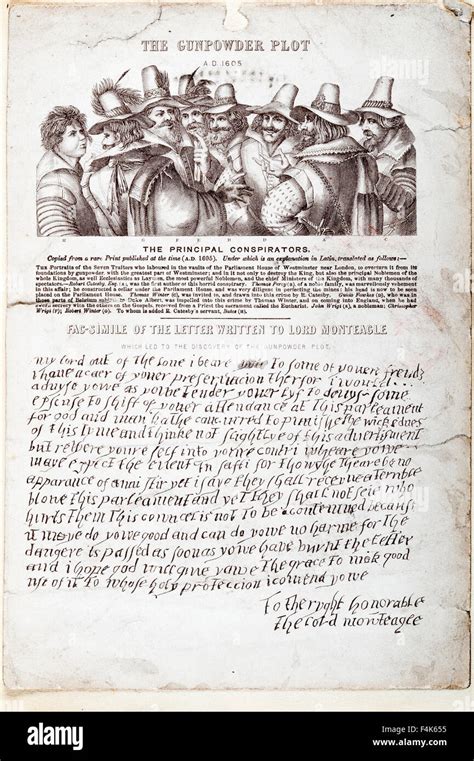 alamy
THE GUNPOWDER PLOT
A.D. 1605
THE PRINCIPAL CONSPIRATORS.
Copied from a rare Print published at the time (A.D. 1605). Under which is an explanation in Latin, translated as follows:—
THE Portraits of the Seven Traitors who laboured in the vaults of the Parliament House of Westminster near London, to overturn it from its
foundations by gunpowder, with the greatest part of Westminster; and in it not only to destroy the King, but also the principal Noblemen of the
whole Kingdom, as well Ecclesiastics as Laymen, the most powerful Noblemen, and the chief Ministers of the Kingdom, with many thousands of
spectators.—Robert Catesby, Esq. was the first author of this horrid conspiracy. Thomas Percy, of a noble family, was marvellously vehement
in this affair; he constructed under the Parliament House, and was very diligent in perfecting the mines; in which the powder was to be
placed on the Parliament House. Thomas Winter was invited to, and drawn into this crime by R. Catesby. Guido Fawkes, who was in
those parts of Belgium subject to Duke Albert, was impelled into this crime by Thomas Winter, and on coming into England, when he had
sworn secrecy with the others on the Gospels, received from a Priest the sacrament called the Eucharist. John Wright, a nobleman; Christopher
Wright; Robert Winter. To whom is added R. Catesby's servant, Bates
FAC-SIMILE OF THE LETTER WRITTEN TO LORD MONTEAGLE
WHICH LED TO THE DISCOVERY OF THE GUNPOWDER PLOT.
my lord out of the love i beare to some of youere frendz
i have a caer of youer preseruacion therfor i would
aduyse yowe as yowe tender youer lyf to deuys some
excuse to shift of youer attendance at this parleament
for god and man hathe concurred to punishe the wickednes
of this tyme and thinke not slightlye of this aduertisment
but retyere youre self into youre contri wheare yowe
maye expect the euent in safti for thowghe theare be no
apparance of anni stir yet i saye they shall receyue a terrible
blowe this parleament and yet they shall not seie who
hurts them this cowncel is not to be contemned because
it maye do yowe good and can do yowe no harme for the
dangere is passed as soon as yowe have burnt the letter
and i hope god will giue yowe the grace to mak good
use of it to whose holy proteccion i comend yowe
To the ryght honorable
The lord monteagle
alamy
Image ID: F4K655
www.alamy.com